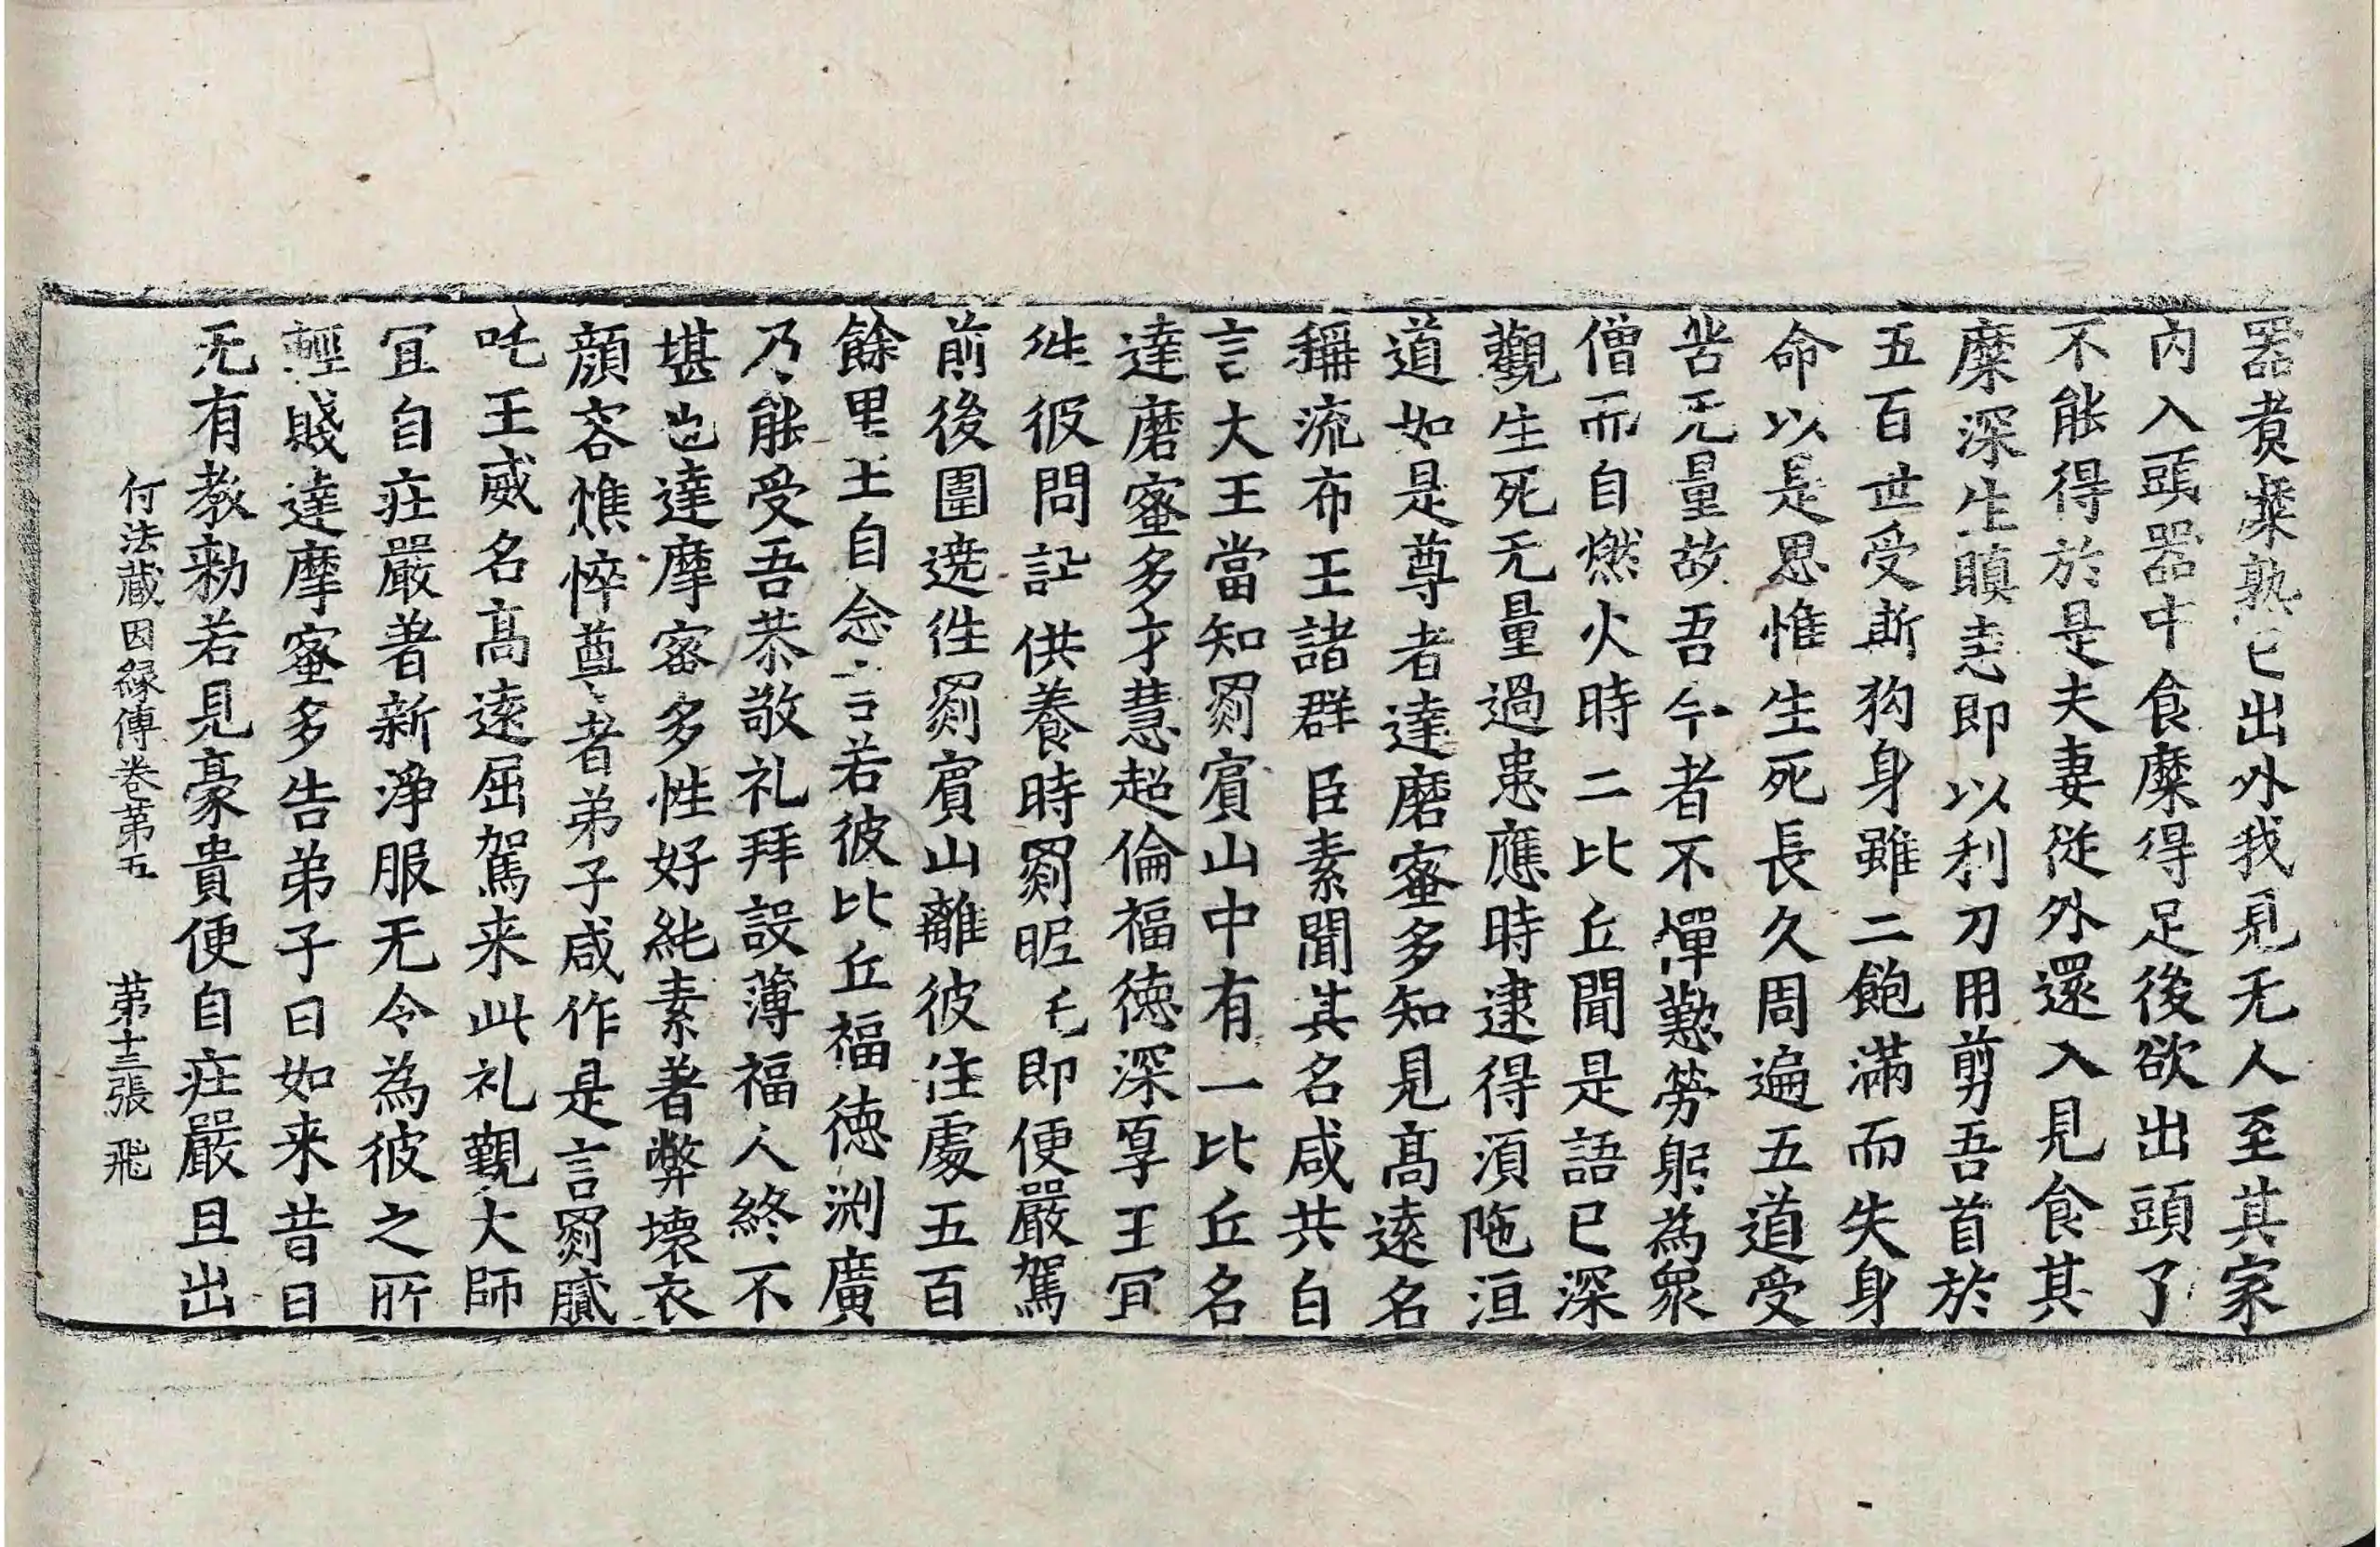 器煑糜熟已出外我見无人至其家
內入頭器中食糜得足後欲出頭了
不能得於是夫妻従外還入見食其
糜深生瞋恚即以利刀用剪吾首於
五百世受斯狗身雖二飽滿而失身
命以是思惟生死長久周遍五道受
苦无量故吾今者不憚懃勞躬為衆
僧而自燃火時二比丘聞是語已深
觀生死无量過患應時逮得須陁洹
道如是尊者達磨蜜多知見髙遠名
稱流布王諸群臣素聞其名咸共白
言大王當知罽賔山中有一比丘名
達磨蜜多才慧超倫福徳深厚王冝
徃彼問訊供養時罽昵吒即便嚴駕
前後圍遶徃罽賔山離彼住處五百
餘里王自念言若彼比丘福徳渕廣
乃能受吾恭敬礼拜設薄福人終不
堪也達摩蜜多性好純素著弊壊衣
顔容憔悴尊者弟子咸作是言罽膩
吒王威名髙逺屈駕来此礼觀大師
冝自荘嚴著新淨服无令為彼之所
輕賤達摩蜜多告弟子曰如来昔日
无有教勑若見豪貴便自荘嚴且出
付法蔵因縁傳卷第五　第十三張　飛